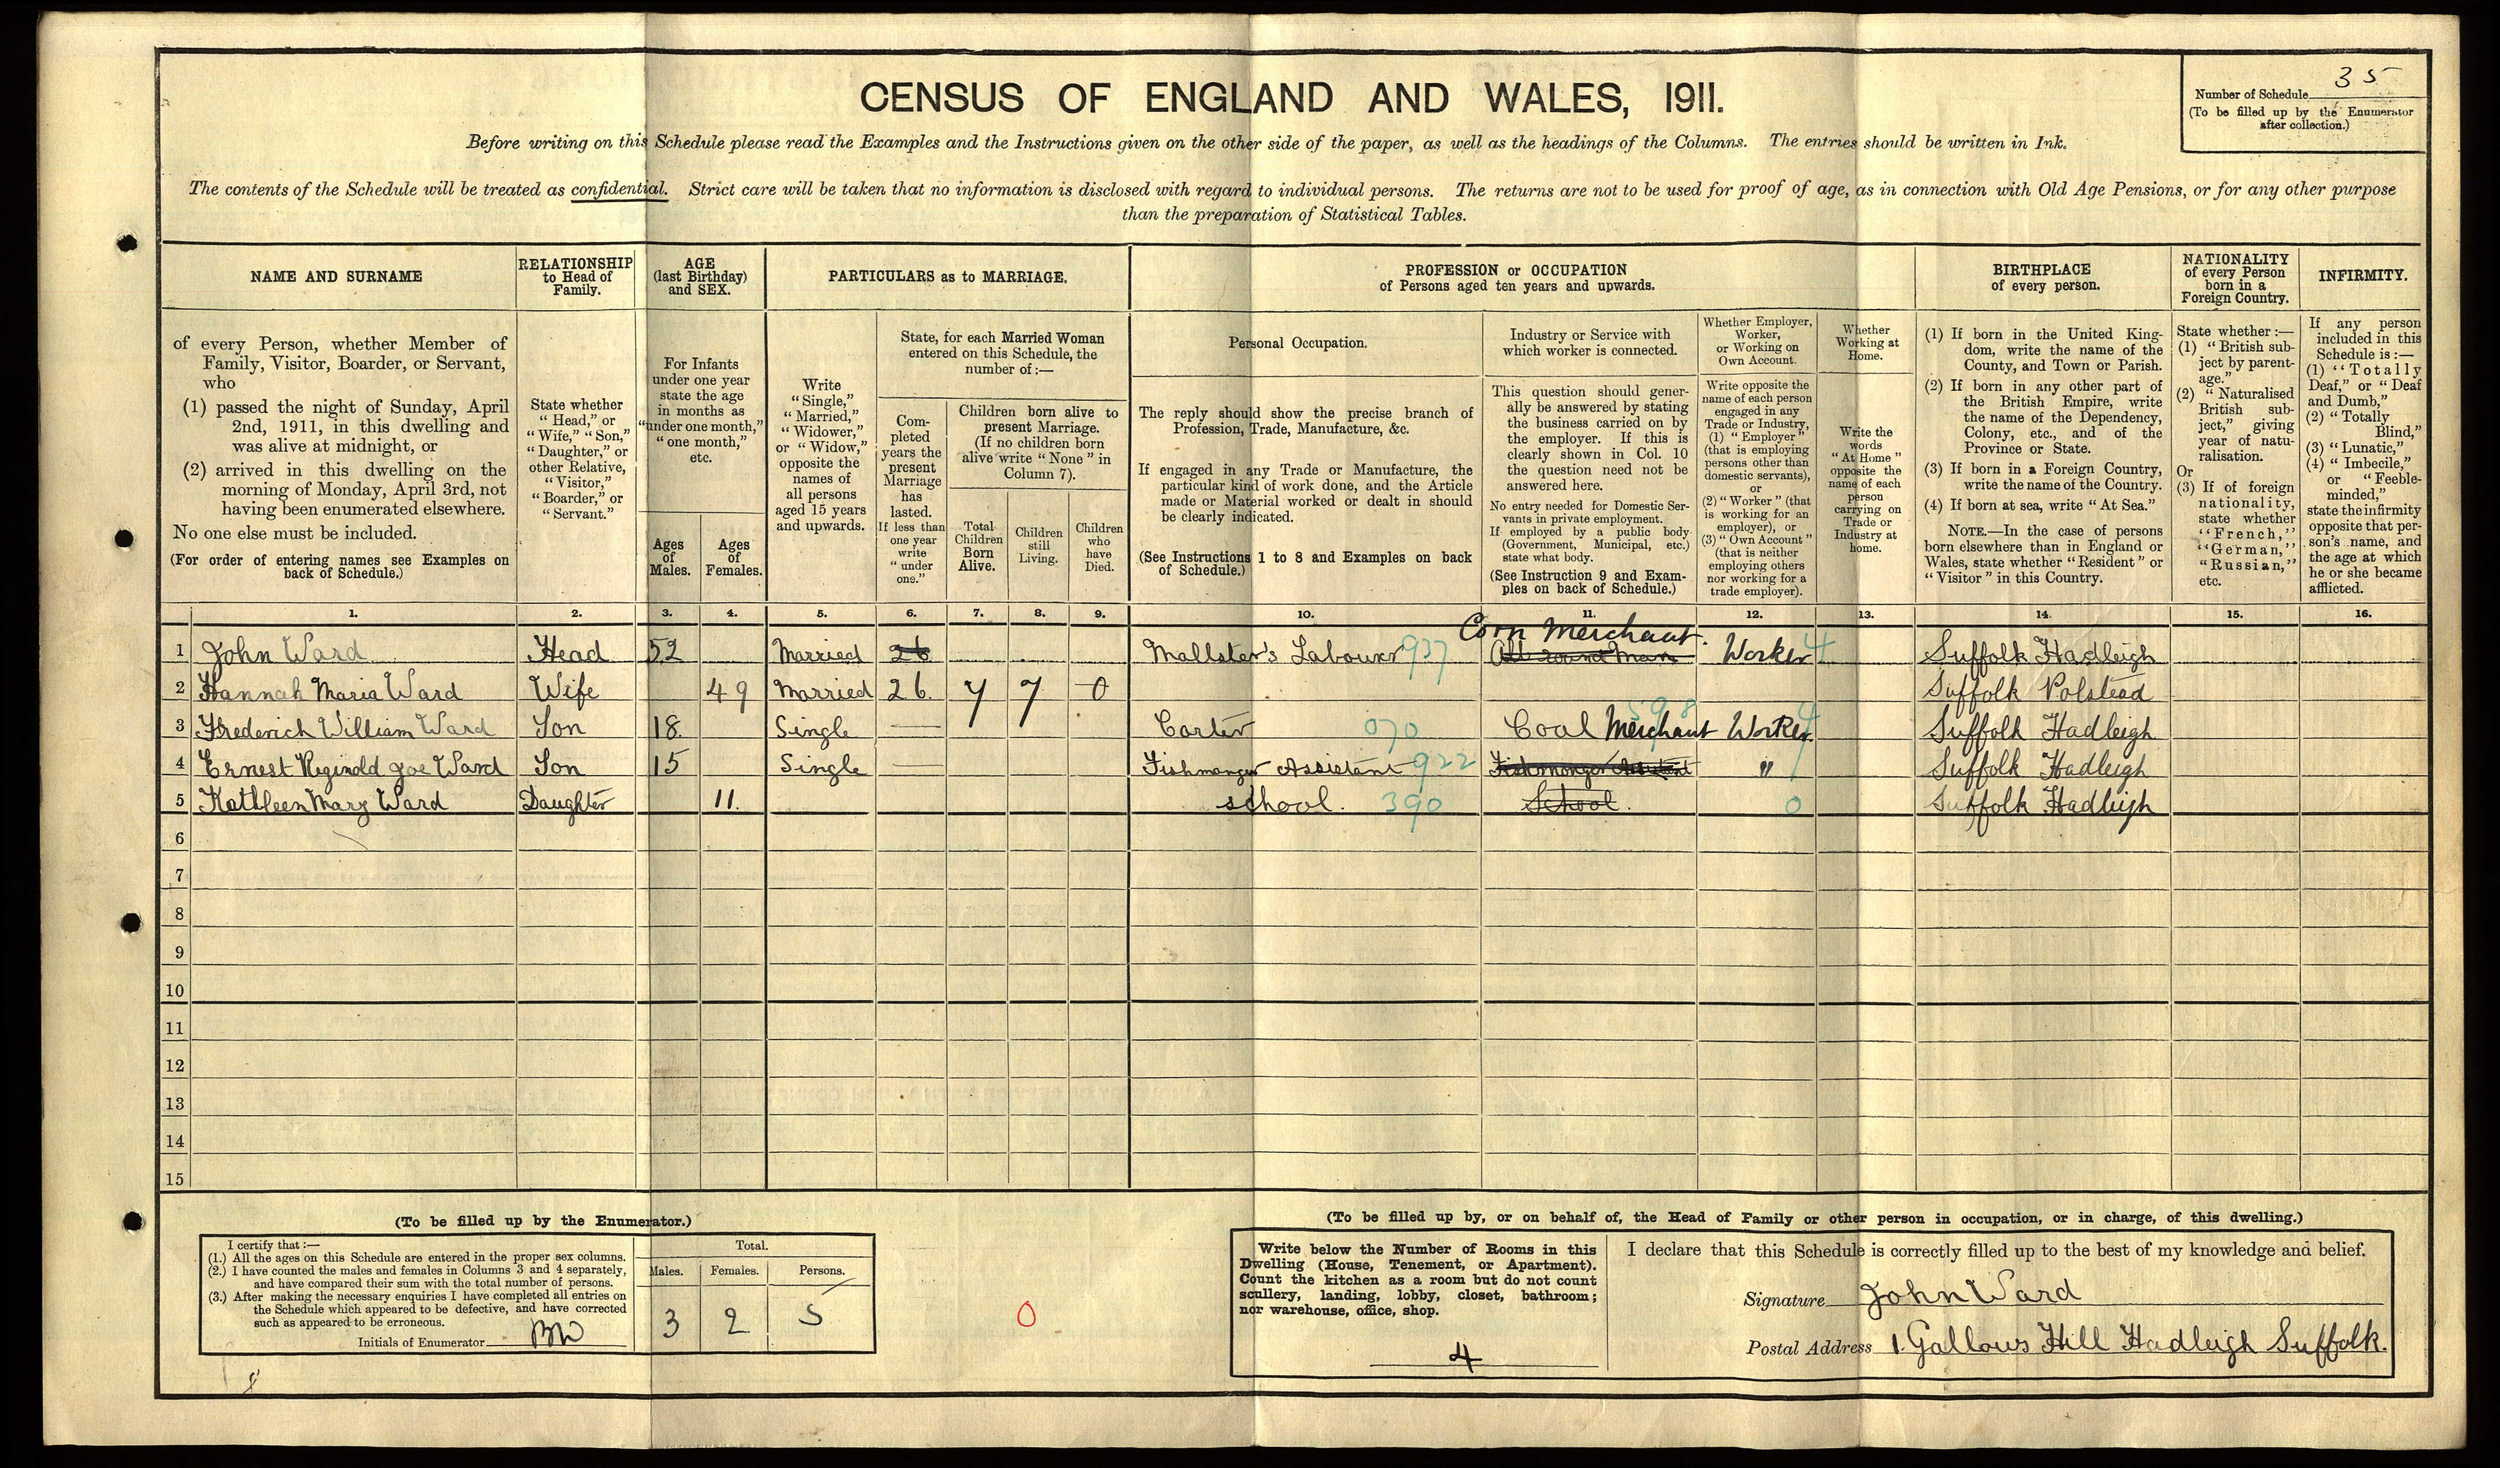 CENSUS OF ENGLAND AND WALES, 1911.
35
Number of Schedule
(To be filled up by the Enumerator
after collection.)
Before writing on this Schedule please read the Examples and the Instructions given on the other side of the paper, as well as the headings of the Columns. The entries should be written in Ink.
The contents of the Schedule will be treated as confidential. Strict care will be taken that no information is disclosed with regard to individual persons. The returns are not to be used for proof of age, as in connection with Old Age Pensions, or for any other purpose
than the preparation of Statistical Tables.
NAME AND SURNAME
of every Person, whether Member of
Family, Visitor, Boarder, or Servant,
who
(1) passed the night of Sunday, April
2nd, 1911, in this dwelling and
was alive at midnight, or
(2) arrived in this dwelling on the
morning of Monday, April 3rd, not
having been enumerated elsewhere.
No one else must be included.
(For order of entering names see Examples on
back of Schedule.)
RELATIONSHIP
to Head of
Family.
State whether
"Head," or
"Wife," "Son,"
"Daughter," or
other Relative,
"Visitor,"
"Boarder," or
"Servant."
AGE
(last Birthday)
and SEX.
For Infants
under one year
state the age
in months as
"under one month,"
"one month,"
etc.
Ages
of
Males.
Ages
of
Females.
PARTICULARS as to MARRIAGE.
Write
"Single,"
"Married,"
"Widower,"
or "Widow,"
opposite the
names of
all persons
aged 15 years
and upwards.
State, for each Married Woman
entered on this Schedule, the
number of:—
Com-
pleted
years the
present
Marriage
has
lasted.
If less than
one year
write
"under
one."
Children born alive to
present Marriage.
(If no children born
alive write "None" in
Column 7).
Total
Children
Born
Alive.
Children
still
Living.
Children
who
have
Died.
PROFESSION or OCCUPATION
of Persons aged ten years and upwards.
Personal Occupation.
The reply should show the precise branch of
Profession, Trade, Manufacture, &c.
If engaged in any Trade or Manufacture, the
particular kind of work done, and the Article
made or Material worked or dealt in should
be clearly indicated.
(See Instructions 1 to 8 and Examples on back
of Schedule.)
Industry or Service with
which worker is connected.
This question should gener-
ally be answered by stating
the business carried on by
the employer. If this is
clearly shown in Col. 10
the question need not be
answered here.
No entry needed for Domestic Ser-
vants in private employment.
If employed by a public body
(Government, Municipal, etc.)
state what body.
(See Instruction 9 and Exam-
ples on back of Schedule.)
Whether Employer,
Worker,
or Working on
Own Account.
Write opposite the
name of each person
engaged in any
Trade or Industry,
(1) "Employer"
(that is employing
persons other than
domestic servants),
or
(2) "Worker" (that
is working for an
employer), or
(3) "Own Account"
(that is neither
employing others
nor working for a
trade employer).
Whether
Working at
Home.
Write the
words
"At Home"
opposite the
name of each
person
carrying on
Trade or
Industry at
home.
BIRTHPLACE
of every person.
(1) If born in the United King-
dom, write the name of the
County, and Town or Parish.
(2) If born in any other part of
the British Empire, write
the name of the Dependency,
Colony, etc., and of the
Province or State.
(3) If born in a Foreign Country,
write the name of the Country.
(4) If born at sea, write "At Sea."
NOTE.—In the case of persons
born elsewhere than in England or
Wales, state whether "Resident" or
"Visitor" in this Country.
NATIONALITY
of every Person
born in a
Foreign Country.
State whether:—
(1) "British sub-
ject by parent-
age."
(2) "Naturalised
British sub-
ject," giving
year of natu-
ralisation.
Or
(3) If of foreign
nationality,
state whether
"French,"
"German,"
"Russian,"
etc.
INFIRMITY.
If any person
included in this
Schedule is:—
(1) "Totally
Deaf," or "Deaf
and Dumb,"
(2) "Totally
Blind,"
(3) "Lunatic,"
(4) "Imbecile,"
or "Feeble-
minded,"
state the infirmity
opposite that per-
son's name, and
the age at which
he or she became
afflicted.
1. 2. 3. 4. 5. 6. 7. 8. 9. 10. 11. 12. 13. 14. 15. 16.
Corn Merchant.
1 John Ward Head 52 Married 26 Maltster's Labourer 937 All round Man Worker 4 Suffolk Hadleigh
2 Hannah Maria Ward Wife 49 Married 26. 7 7 0 Suffolk Polstead
598
3 Frederick William Ward Son 18. Single — Carter 070 Coal Merchant Worker. 4 Suffolk Hadleigh
4 Ernest Reginold Joe Ward Son 15 Single — Fishmonger Assistant 922 Fishmonger Assistant " Suffolk Hadleigh
5 Kathleen Mary Ward Daughter 11. school. 390 School. 0 Suffolk Hadleigh
6
7
8
9
10
11
12
13
14
15
(To be filled up by the Enumerator.)
I certify that:—
(1.) All the ages on this Schedule are entered in the proper sex columns.
(2.) I have counted the males and females in Columns 3 and 4 separately,
and have compared their sum with the total number of persons.
(3.) After making the necessary enquiries I have completed all entries on
the Schedule which appeared to be defective, and have corrected
such as appeared to be erroneous.
Initials of Enumerator
Total.
Males. Females. Persons.
3 2 5
0
(To be filled up by, or on behalf of, the Head of Family or other person in occupation, or in charge, of this dwelling.)
Write below the Number of Rooms in this
Dwelling (House, Tenement, or Apartment).
Count the kitchen as a room but do not count
scullery, landing, lobby, closet, bathroom;
nor warehouse, office, shop.
4
I declare that this Schedule is correctly filled up to the best of my knowledge and belief.
Signature John Ward
Postal Address 1. Gallows Hill Hadleigh Suffolk.